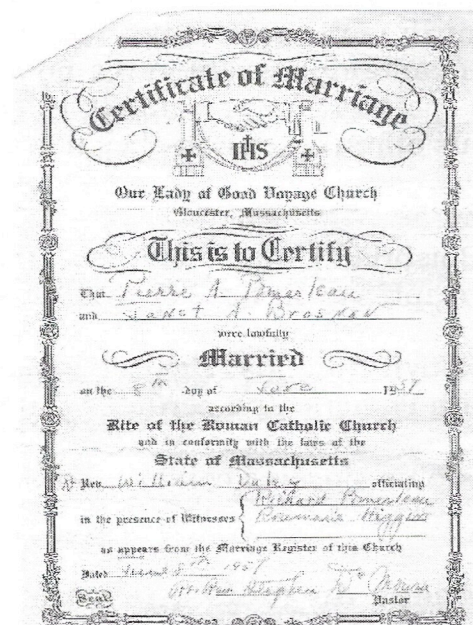 Certificate of Marriage
IHS
Our Lady of Good Voyage Church
Gloucester, Massachusetts
This is to Certify
That Pierre A. Pomerleau
and Janet A. Brosnan
were lawfully
Married
on the 8th day of June 19
according to the
Rite of the Roman Catholic Church
and in conformity with the laws of the
State of Massachusetts
Rev. William officiating
in the presence of Witnesses { Richard Pomerleau
Higgins
as appears from the Marriage Register of this Church
Dated June 8th
Stephen
Pastor
Seal